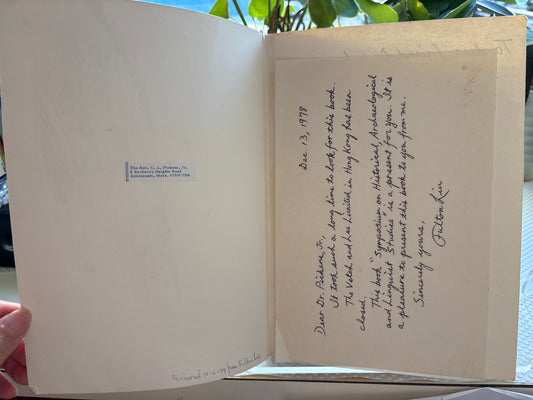 The Rev. C. L. Pickens, Jr.
Annisquam, Mass. 01930 USA
Dec. 13, 1978
Dear Dr. Pickens, Jr.,
It took such a long time to look for this book.
The Vetch and Lee Limited in Hong Kong has been
closed.
This book "Symposium on Historical, Archaeological
and Linguist Studies" is a present for you. It is
a pleasure to present this book to you from me.
Sincerely yours,
Fulton Liu